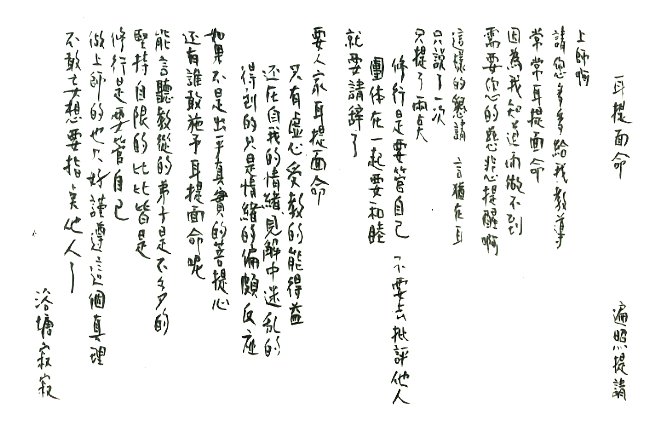 耳提面命　遍照提請
上師啊
請您多多給我教導
常常耳提面命
因為我知道而做不到
需要您的慈悲提醒啊
這樣的懇請　言猶在耳
只說了一次
只提了兩點
修行是要管自己　不要去批評他人
團体在一起要和睦
就要請辭了
要人家耳提面命
只有虛心受教的能得益
还在自我的情緒見解中迷乱的
得到的只是情緒的偏頗反应
如果不是出乎真實的菩提心
还有誰敢施予耳提面命呢
能言聽教從的弟子是不多的
堅持自限的比比皆是
修行是要管自己
做上師的也只好謹遵這個真理
不敢妄想要指点他人了
浴塘寂寂